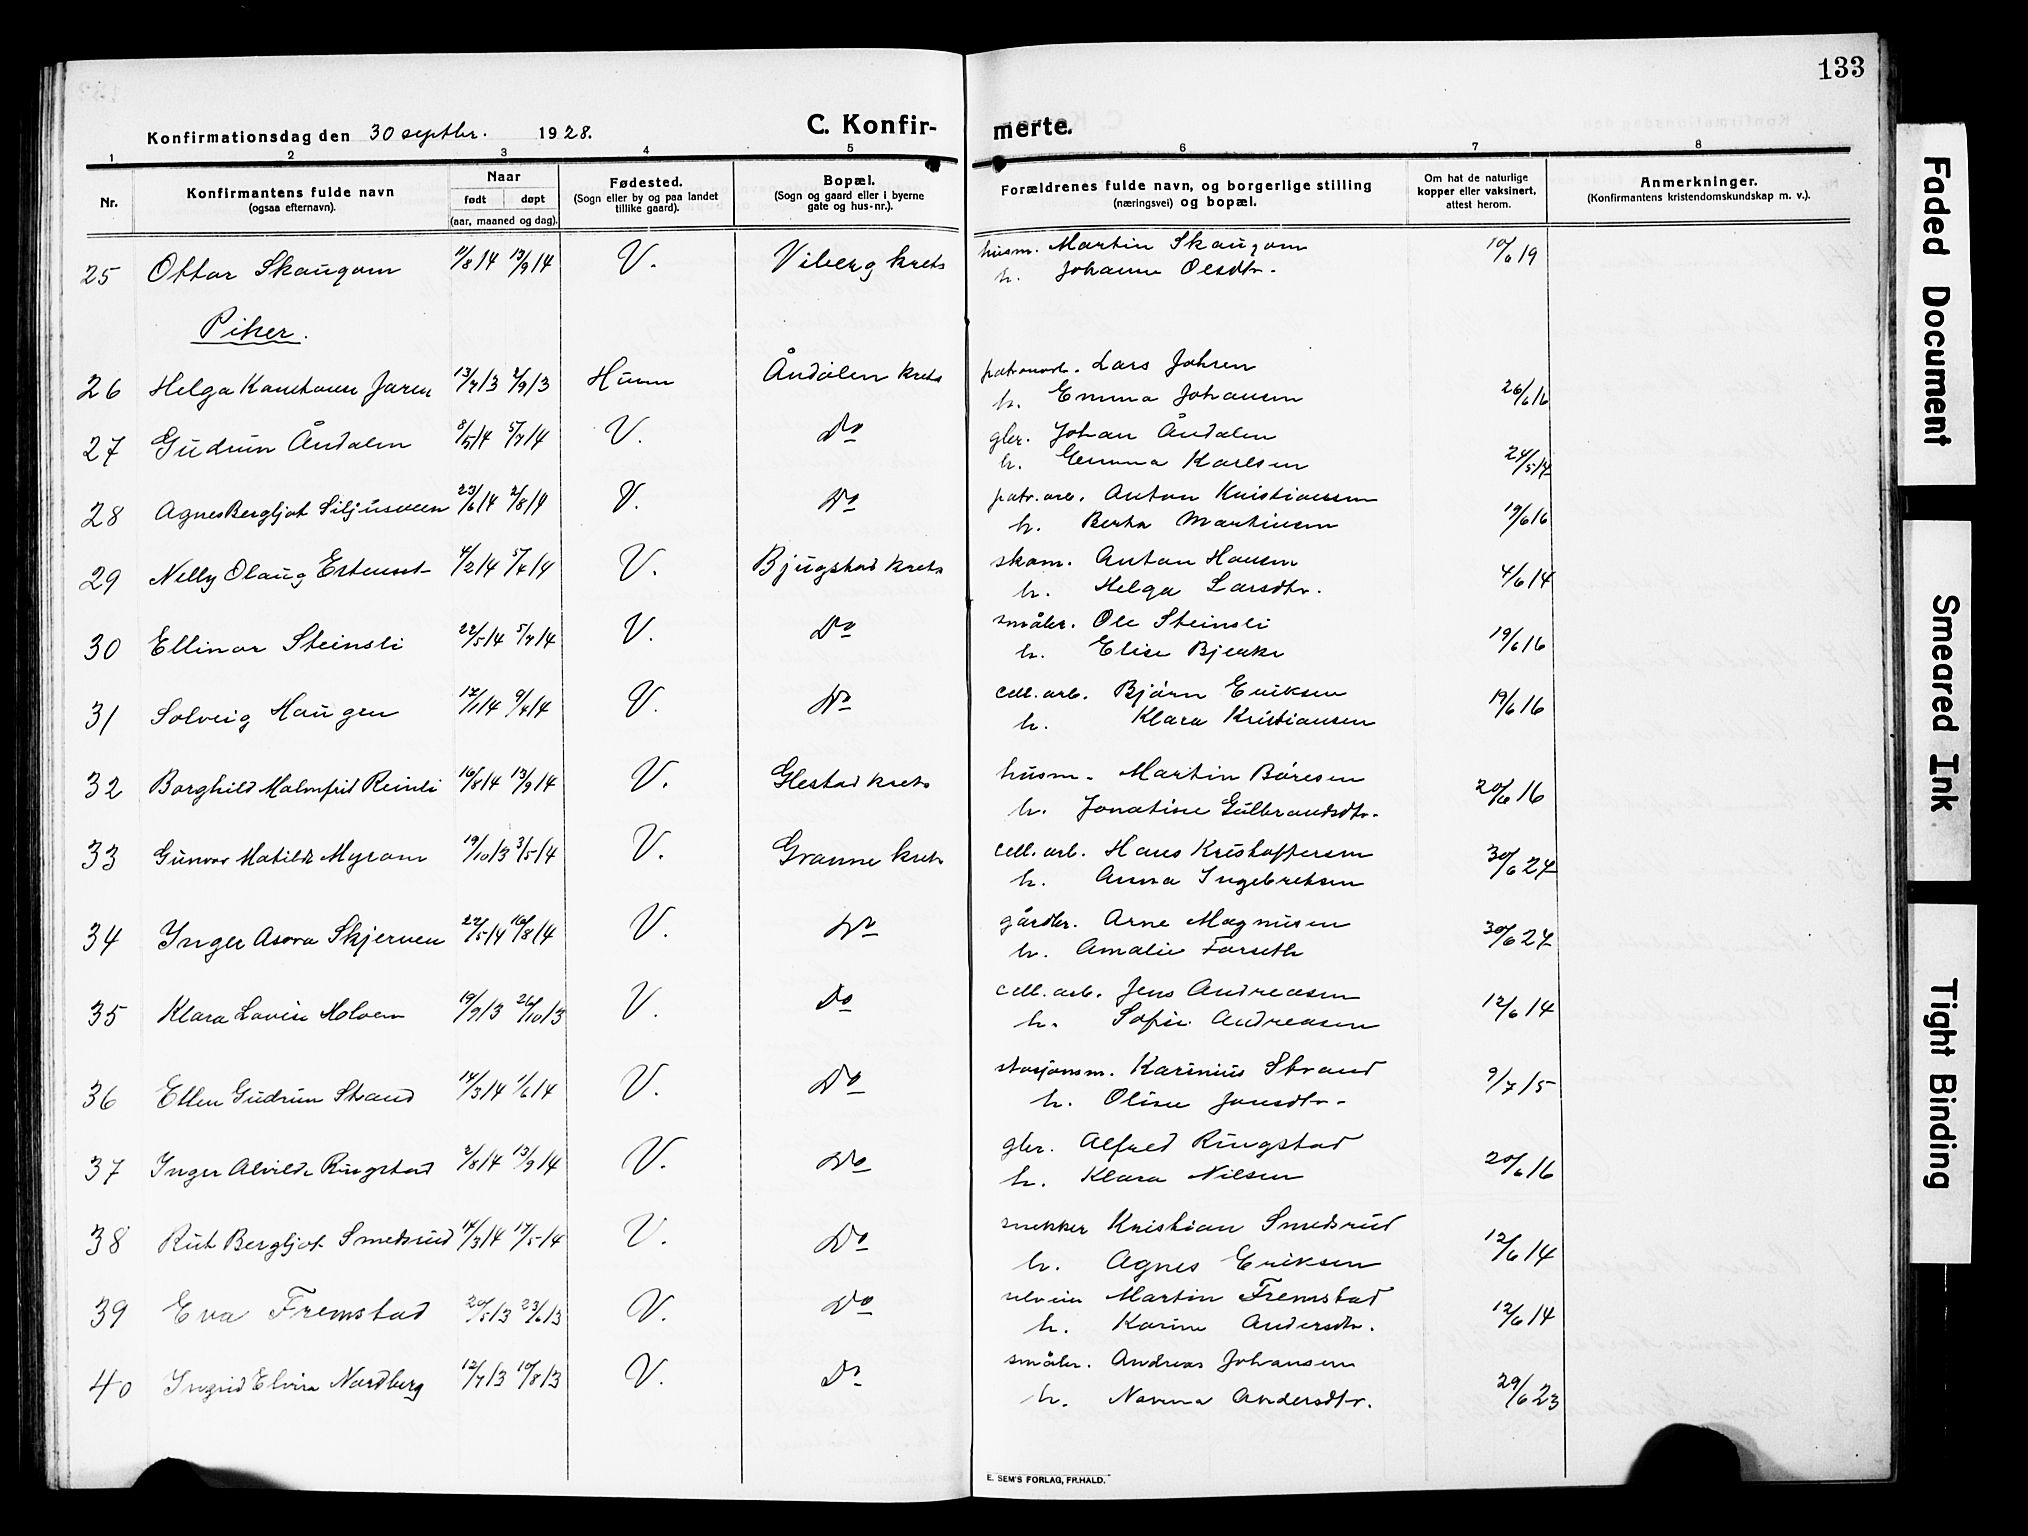 133
Konfirmationsdag den 30 septbr. 1928.
C. Konfir-
merte.
1 2 3 4 5 6 7 8
Nr.
Konfirmantens fulde navn
(ogsaa efternavn).
Naar
født døpt
(aar, maaned og dag).
Fødested.
(Sogn eller by og paa landet
tillike gaard).
Bopæl.
(Sogn og gaard eller i byerne
gate og hus-nr.).
Forældrenes fulde navn, og borgerlige stilling
(næringsvei) og bopæl.
Om hat de naturlige
kopper eller vaksinert,
attest herom.
Anmerkninger.
(Konfirmantens kristendomskundskap m. v.).
25 Ottar Skaugom 11/8 14 13/9 14 V. Viberg krets husm. Martin Skaugom 10/6 19
h. Johanne Olsdtr.
Piker.
26 Helga Jaren 13/7 13 7/9 13 Hunn Åndalen krets Lars Johren
h. Emma Johansen 26/6 16
27 Gudrun Åndalen 8/5 14 5/7 14 V. Do gbr. Johan Åndalen
h. Emma Karlsen 24/5 14
28 Agnes Bergljot Siljusveen 23/6 14 2/8 14 V. Do patr. arb. Anton Kristiansen
h. Berta Martinsen 19/6 16
29 Nelly Olaug Estenset 4/2 14 5/4 14 V. Bjugstad krets skom. Anton Hansen
h. Helga Larsdtr. 4/6 14
30 Ellinor Steinsli 22/5 14 5/7 14 V. Do småbr. Ole Steinsli
h. Elise Bjerke 19/6 16
31 Solveig Haugen 17/1 14 9/4 14 V. Do cell. arb. Bjørn Eriksen
h. Klara Kristiansen 19/6 16
32 Borghild Malmfrid Reinli 16/8 14 13/9 14 V. Glestad krets husm. Martin Børesen
h. Jonatine Gulbrandsdtr. 20/6 16
33 Gunvor Matilde Myrom 19/10 13 3/5 14 V. Granne krets cell. arb. Hans Kristoffersen
h. Anna Ingebretsen 30/6 27
34 Inger Asora Skjerven 27/5 14 16/8 14 V. Do gårdbr. Arne Magnusen
h. Amalie Farseth 30/6 27
35 Klara Lovise Holven 19/9 13 26/10 13 V. Do cell. arb. Jens Andreasen
h. Sofie Andreasen 12/6 14
36 Ellen Gudrun Strand 14/3 14 1/6 14 V. Do stasjonsm. Karinius Strand
h. Oline Jonsdtr. 9/7 15
37 Inger Alvilde Ringstad 2/8 14 13/9 14 V. Do gbr. Alfred Ringstad
h. Klara Nilsen 20/6 16
38 Rut Bergljot Smedsrud 14/3 14 17/5 14 V. Do snekker Kristian Smedsrud
h. Agnes Eriksen 12/6 14
39 Eva Fremstad 20/5 13 23/6 13 V. Do Martin Fremstad
h. Karine Andersdtr. 12/6 14
40 Ingrid Elvira Nordberg 12/7 13 10/8 13 V. Do småbr. Andreas Johansen
h. Andersdtr. 29/6 23
E. SEM'S FORLAG, FR.HALD.
Faded Document
Smeared Ink
Tight Binding